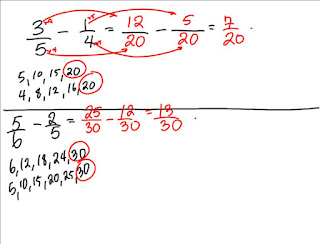 3/5 - 1/4 = 12/20 - 5/20 = 7/20.
5, 10, 15, 20
4, 8, 12, 16, 20
5/6 - 2/5 = 25/30 - 12/30 = 13/30.
6, 12, 18, 24, 30
5, 10, 15, 20, 25, 30